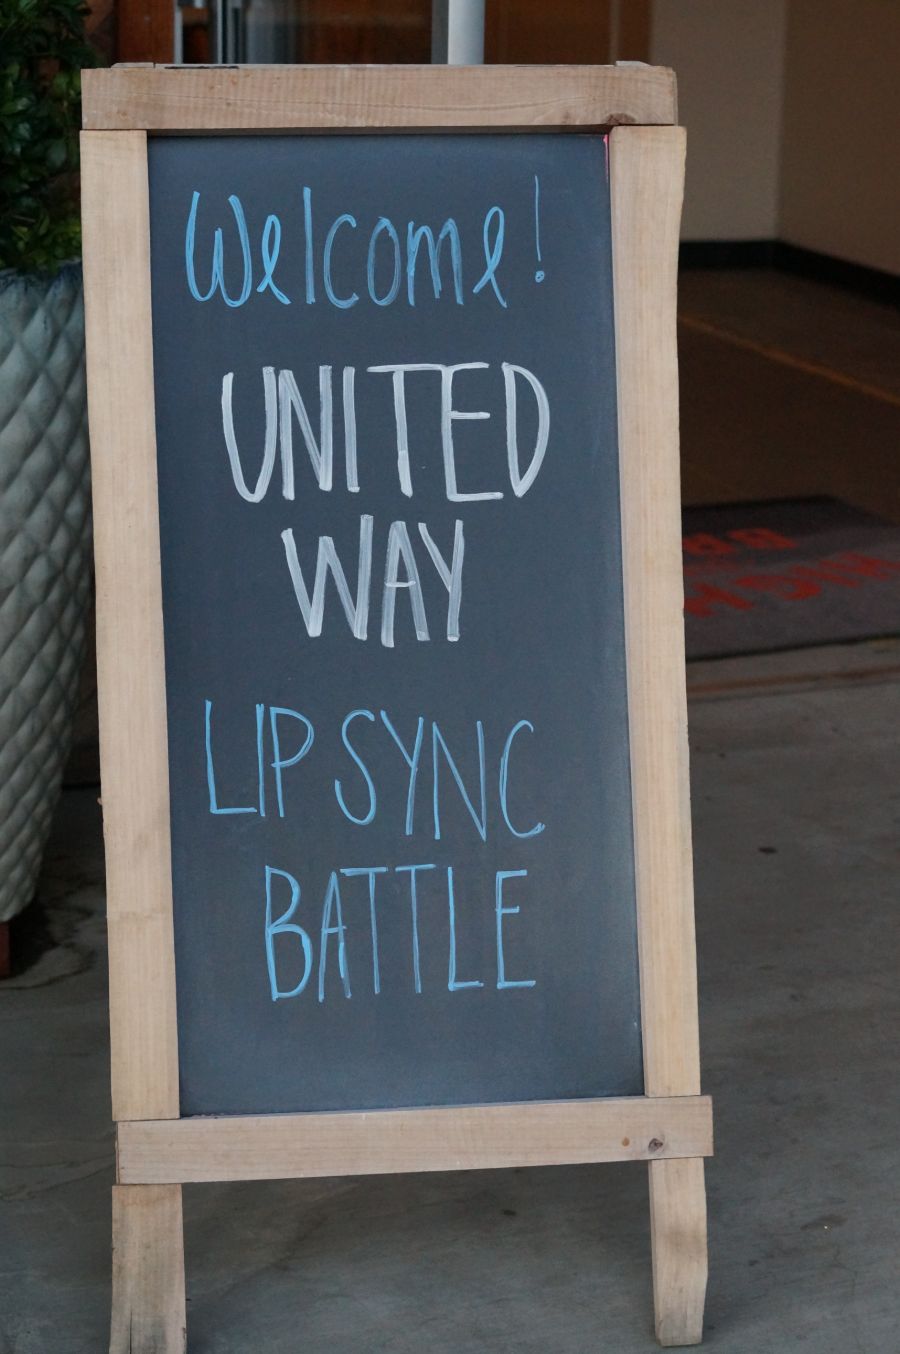 Welcome!
UNITED
WAY
LIP SYNC
BATTLE